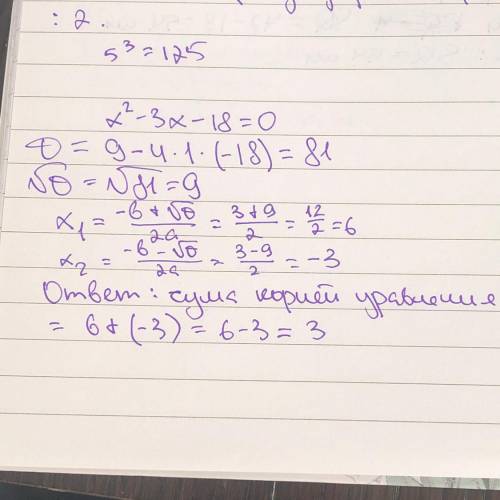 : 2.
5³ = 125
x² - 3x - 18 = 0
D = 9 - 4 · 1 · (-18) = 81
√D = √81 = 9
x₁ = (-b + √D)/2a = (3 + 9)/2 = 12/2 = 6
x₂ = (-b - √D)/2a = (3 - 9)/2 = -3
Ответ: сума корней уравнения
= 6 + (-3) = 6 - 3 = 3